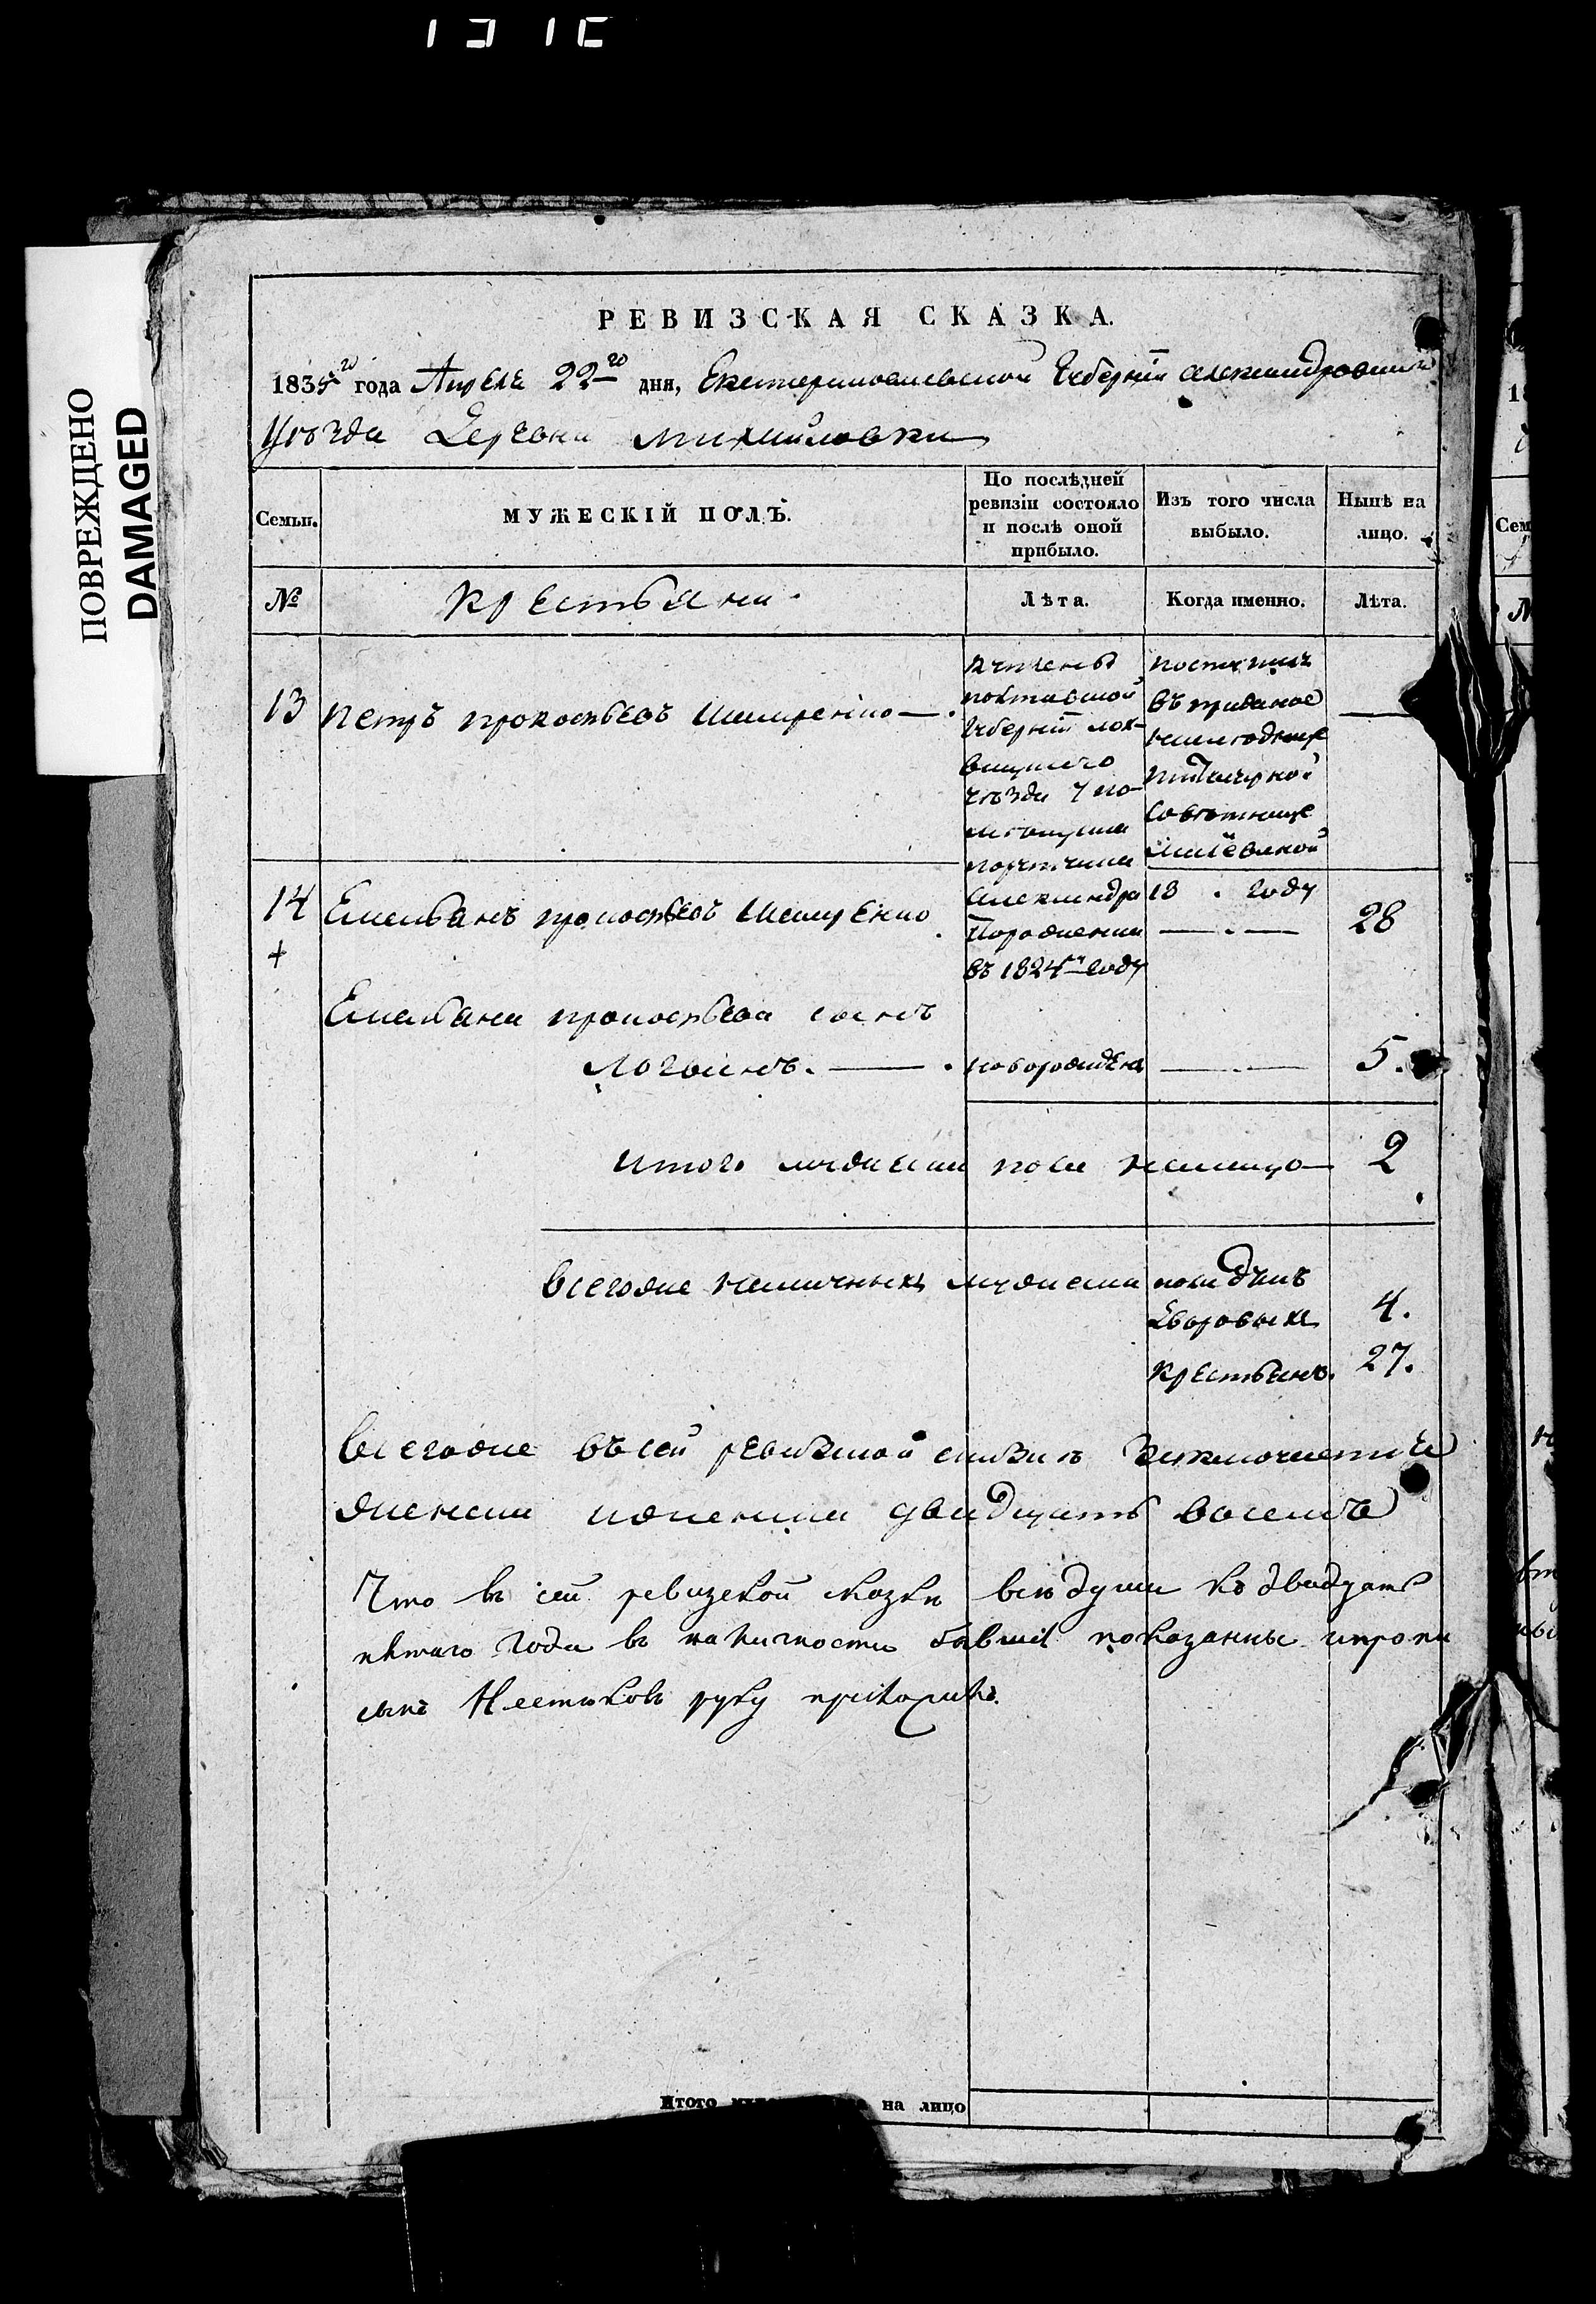 ПОВРЕЖДЕНО
DAMAGED
РЕВИЗСКАЯ СКАЗКА.
1835го года Апреля 22го дня, Екатеринославской Губернiи Александровскаго
Уѣзда Деревни Михайловки
Семьи.
МУЖЕСКIЙ ПОЛЪ.
По послѣдней
ревизiи состояло
и послѣ оной
прибыло.
Изъ того числа
выбыло.
Нынѣ на
лицо.
№
Крестьяни
Лѣта.
Когда именно.
Лѣта.
13
Петръ Прокофьевъ
купленъ
Полтавской
Губернiи Лох-
вицкаго
уѣзда у по-
мѣщика
порутчика
Александра
въ 1824м году
поступилъ
въ приданое
Совѣтнице
18 . году
14
Емельянъ Прокофьевъ
28
Емельяна Прокофьева сынъ
Логвинъ.
новорожденъ
5.
Итого мужеска пола налицо
2
Всегоже наличныхъ мужеска пола душъ
Дворовыхъ
4.
Крестьянъ.
27.
Всегоже въ сей ревизкой сказкѣ заключается
двадцать восемъ
Что въ сей ревизской сказки всѣ души по двадцать
пятаго года въ наличности бывшiя показанны ипропи
руку приложилъ.
Итого
на лицо